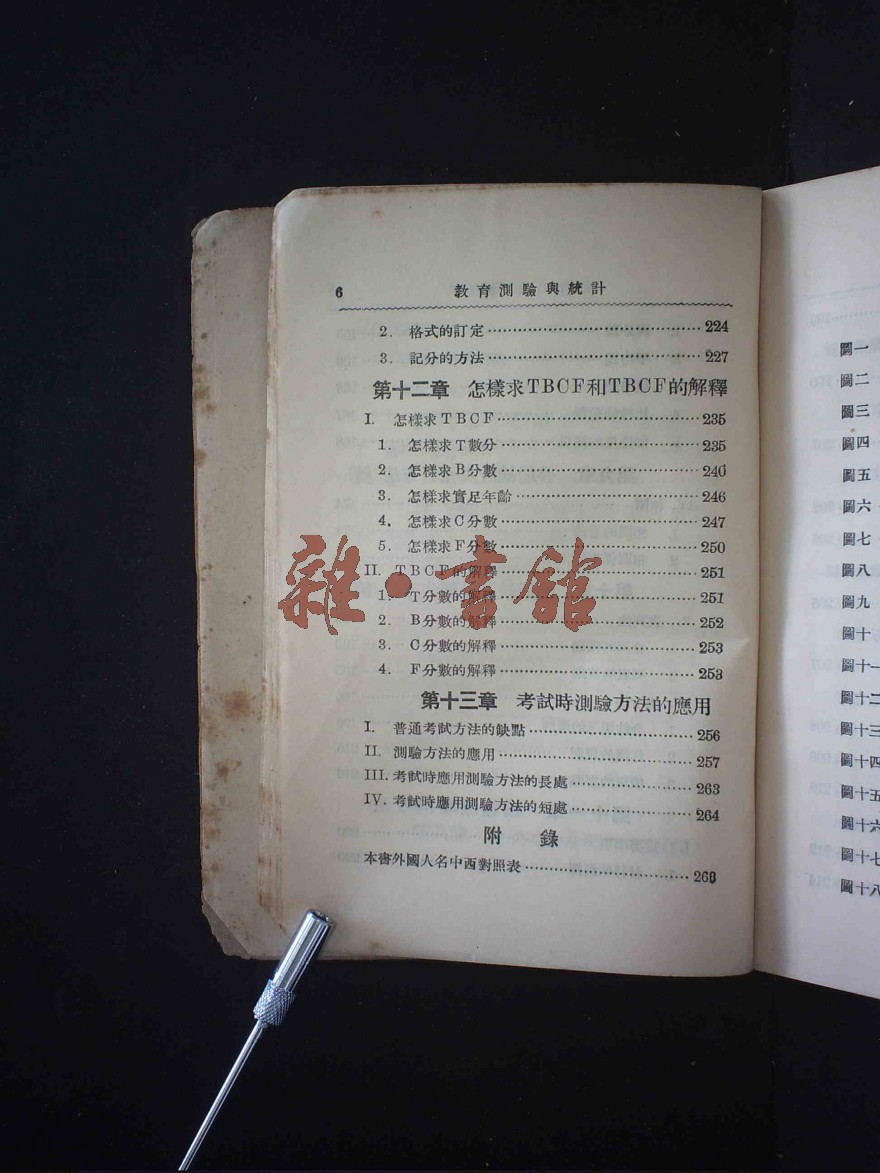 6 教育測驗與統計
2. 格式的訂定 224
3. 記分的方法 227
第十二章 怎樣求TBCF和TBCF的解釋
I. 怎樣求TBCF 235
1. 怎樣求T數分 235
2. 怎樣求B分數 240
3. 怎樣求實足年齡 246
4. 怎樣求C分數 247
5. 怎樣求F分數 250
II. TBCF的解釋 251
1. T分數的解釋 251
2. B分數的解釋 252
3. C分數的解釋 253
4. F分數的解釋 253
第十三章 考試時測驗方法的應用
I. 普通考試方法的缺點 256
II. 測驗方法的應用 257
III. 考試時應用測驗方法的長處 263
IV. 考試時應用測驗方法的短處 264
附錄
本書外國人名中西對照表 266
雜·書館
圖一
圖二
圖三
圖四
圖五
圖六
圖七
圖八
圖九
圖十
圖十一
圖十二
圖十三
圖十四
圖十五
圖十六
圖十七
圖十八